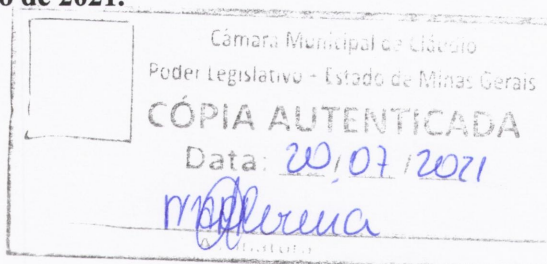 o de 2021.
Câmara Municipal de Cláudio
Poder Legislativo - Estado de Minas Gerais
CÓPIA AUTENTICADA
Data: 20/07/2021
Assinatura